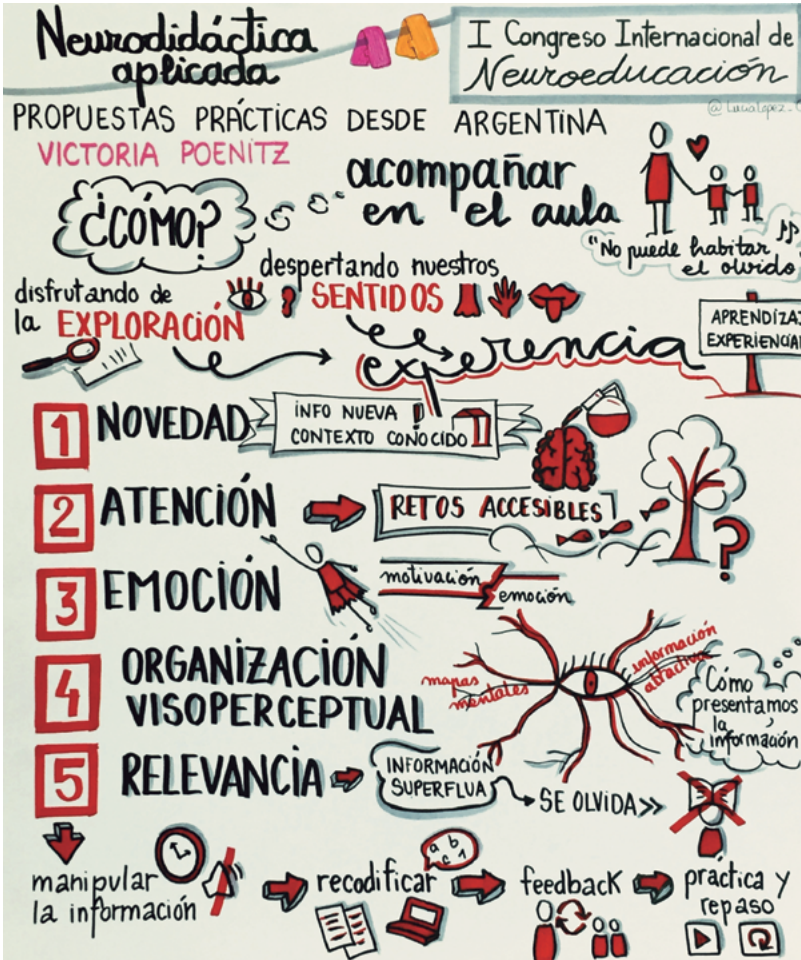 Neurodidáctica
aplicada
I Congreso Internacional de
Neuroeducación
@Lucialopez_
PROPUESTAS PRÁCTICAS DESDE ARGENTINA
VICTORIA POENITZ
¿CÓMO?
acompañar
en el aula
"No puede habitar
el olvido"
disfrutando de
la EXPLORACIÓN
despertando nuestros
SENTIDOS
experencia
APRENDIZAJ
EXPERIENCIAL
1 NOVEDAD
INFO NUEVA
CONTEXTO CONOCIDO
2 ATENCIÓN
RETOS ACCESIBLES
?
3 EMOCIÓN
motivación
emoción
4 ORGANIZACIÓN
VISOPERCEPTUAL
mapas
mentales
información
atractiva
Cómo
presentamos
la
información
5 RELEVANCIA
INFORMACIÓN
SUPERFLUA
SE OLVIDA >>
manipular
la información
a b
c 1
recodificar
feedback
práctica y
repaso